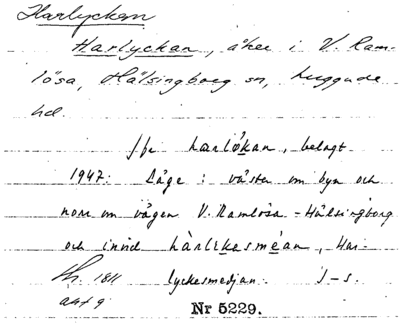 Harlyckan
Harlyckan, åker i V. Ram-
lösa, Hälsingborg sn, Luggude
hd.
harlö̀kan, belagt
1947. Läge: väster om byn och
norr om vägen V. Ramlösa - Hälsingborg
och invid hàrlikesméan, Har-
lyckesmedjan. J-s.
1811
akt 9
Nr 5229.